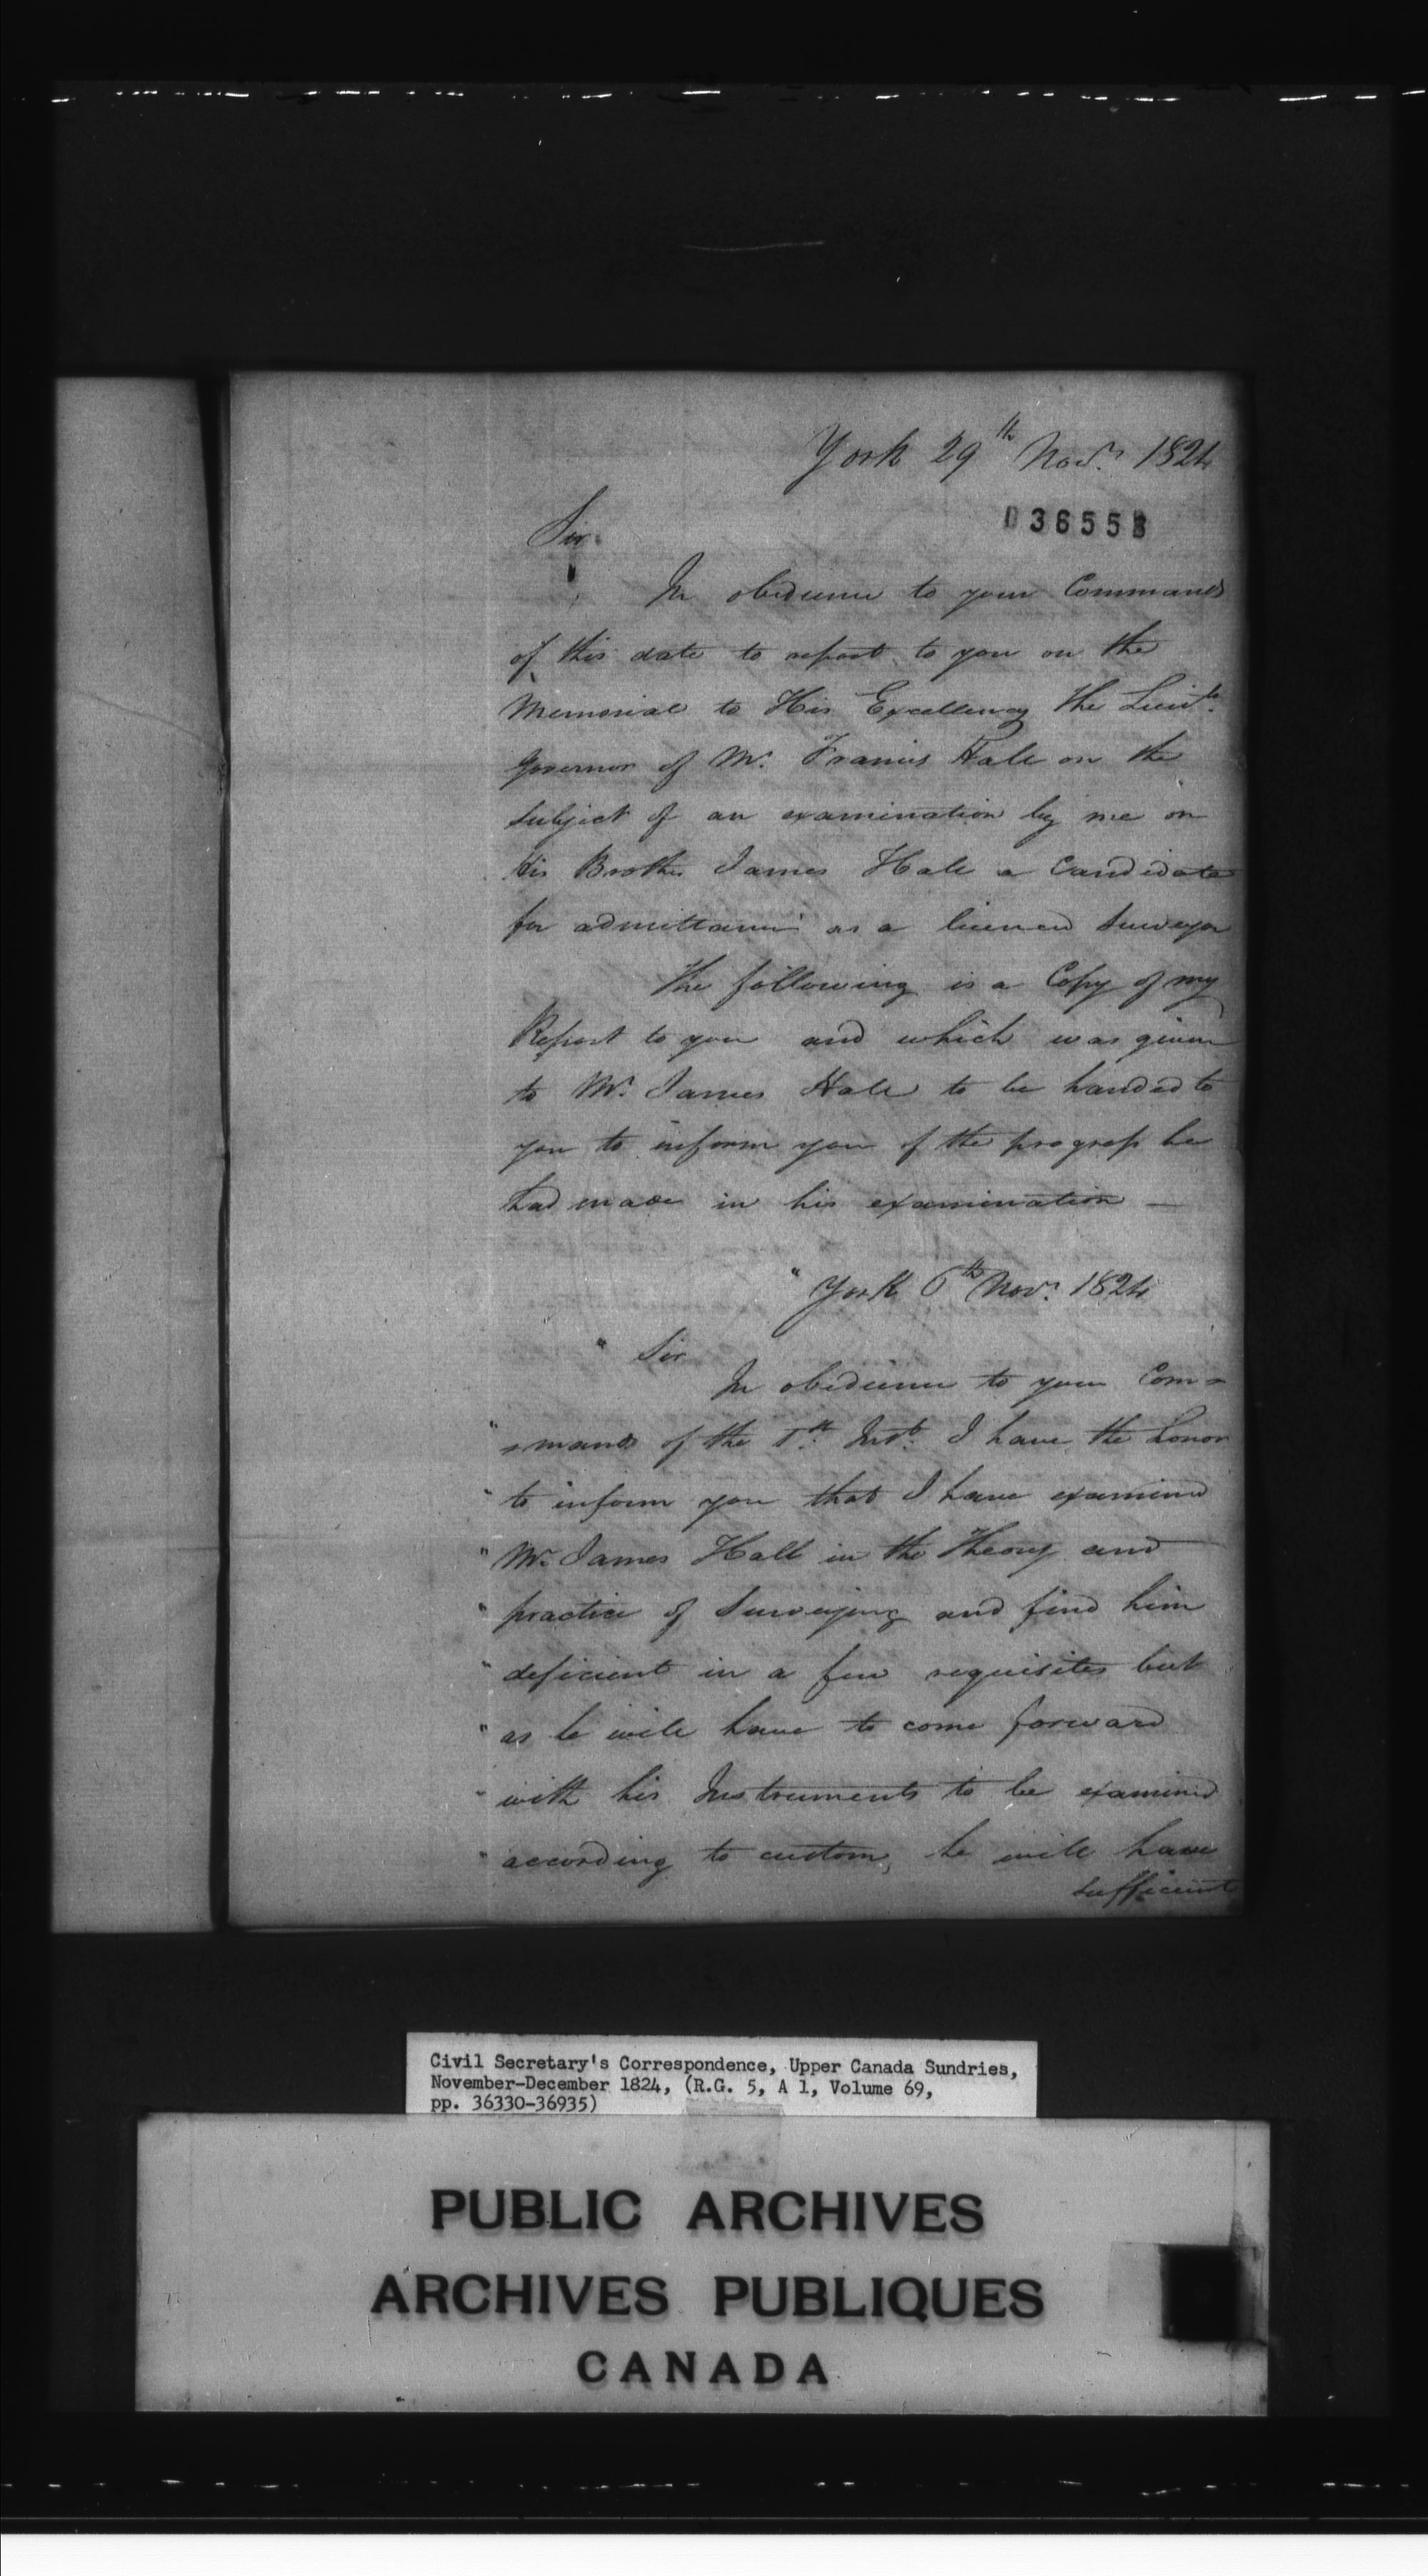 York 29th Novr. 1824
036558
Sir
In obedience to your Commands
of this date to report to you on the
Memorial to His Excellency the Lieut.
Governor of Mr. Francis Hall on the
subject of an examination by me on
His Brother James Hall a Candidate
for admittance as a licened Surveyor
The following is a Copy of my
Report to you and which was given
to Mr. James Hall to be handed to
you to inform you of the progress he
had made in his examination —
" York 6th Novr. 1824
" Sir
In obedience to your Com=
" =mands of the Inst. I have the honor
" to inform you that I have examined
" Mr. James Hall in the Theory and
" practice of Surveying and find him
" deficient in a few requisites but
" as he will have to come forward
" with his Instruments to be examined
" according to custom, he will have
sufficient
Civil Secretary's Correspondence, Upper Canada Sundries,
November-December 1824, (R.G. 5, A 1, Volume 69,
pp. 36330-36935)
PUBLIC ARCHIVES
ARCHIVES PUBLIQUES
CANADA